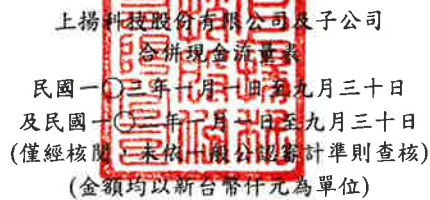 上揚科技股份有限公司及子公司
合併現金流量表
民國一〇三年一月一日至九月三十日
及民國一〇二年一月一日至九月三十日
(僅經核閱，未依一般公認審計準則查核)
(金額均以新台幣仟元為單位)